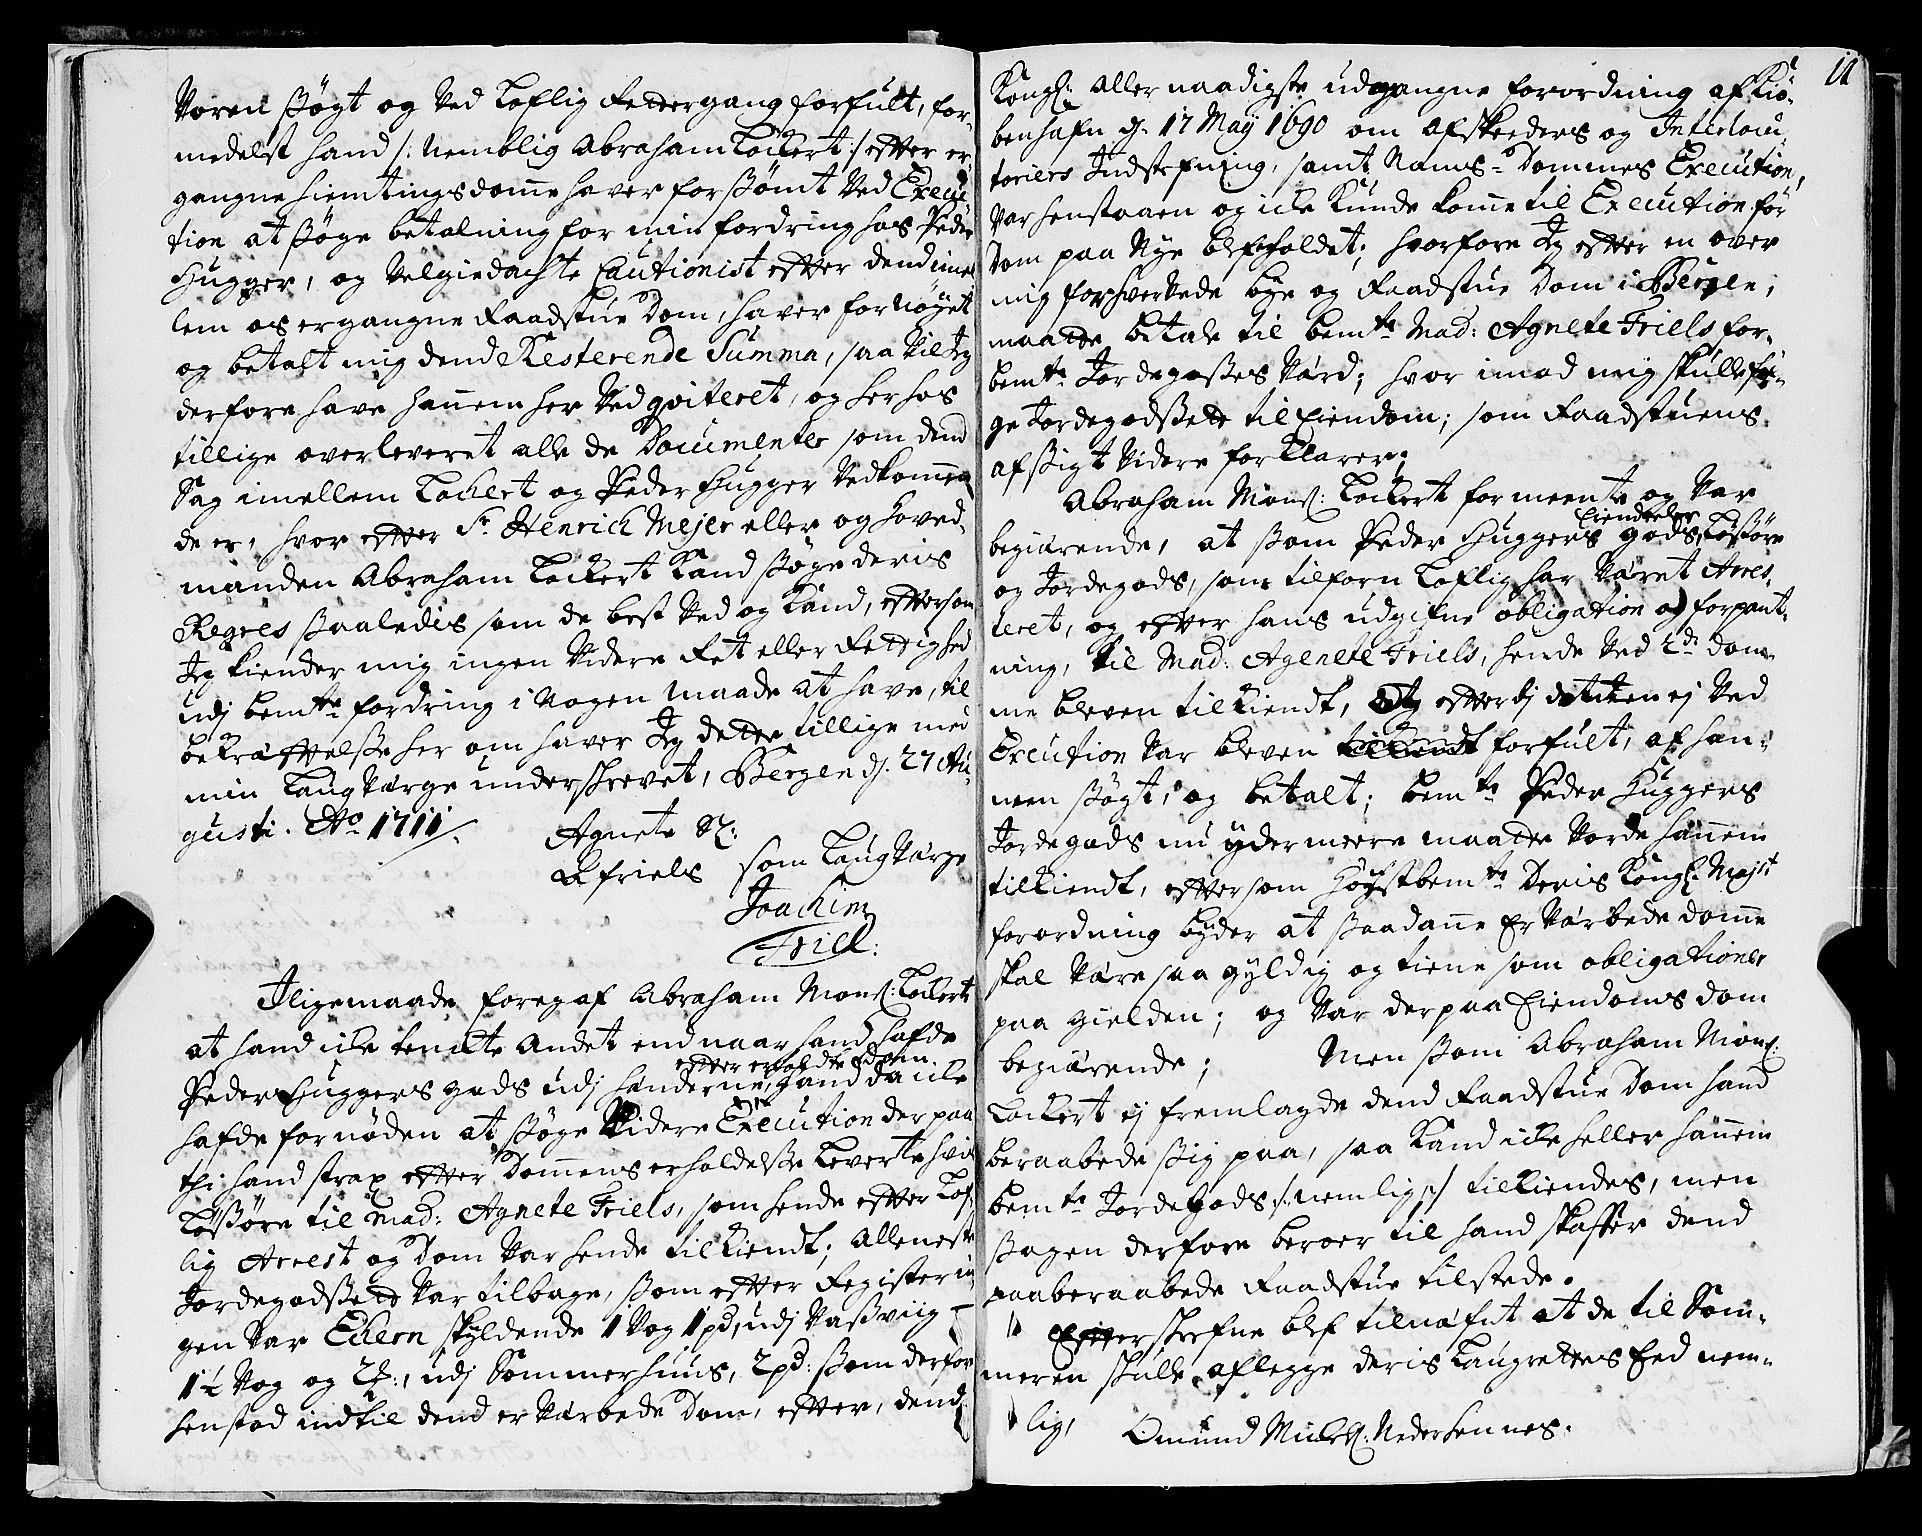 Voren ßøgt og Ved Loflig Rettergang forfult, for-
medelst hand /: Nemblig Abraham Lockert :/ efter er-
gangne hiemtingsdome haver forßømt Ved Execu-
tion at ßøge betalning for min fordring hos Peder
Hugger, og Velgiedachte Cautionist efter dend imel-
lem os ergangne Raadstue Dom, haver fornøyet
og betalt mig dend Resterende Summa, saa Vil Jeg
derfore have hannem her Ved qviteret, og her hos
tillige overleveret alle de Documenter som dend
Sag imellem Lockert og Peder Hugger Vedkommen-
de er, hvor efter Sr. Henrich Mejer eller og hoved-
manden Abraham Lockert Kand ßøge deris
Regres ßaaledis som de best Ved og Kand, eftersom
Jeg kiender mig ingen Videre Ret eller Rettighed
udj bemte fordring i Nogen maade at have, til
bekræftelße her om haver Jeg dette tillige med
min Laugværge underskrevet, Bergen dj. 27 Au-
gusti. Ao 1711.
Agnete Sl:
friels som Laugværge
Joachim
Friel:
Iligemaade foregaf Abraham Monß: Lockert
at hand icke tenckte Andet end naar hand hafde
efter erholdte dom
Peder Huggers gods udj hænderne, hand da icke
hafde fornøden at ßøge Videre Execution der paa
thi hand strax efter Dommens erholdelße Leverte hvis
Løßøre til Mad: Agnete Friels, som hende efter Lof-
lig Arrest og Dom Var hende tilkiendt; Alleneste
Jordegodßet Var tilbage, ßom efter Registerin-
gen Var Echern skyldende 1 Vog 1 pd, udj Vaßviig
1½ Vog og udj Sommerhuus, 2 pd: ßom derfor
henstod indtil dend erværbede Dom, efter, dend
11
Kongl: Allernaadigste udgangne forordning af Kiø-
benhafn dj. 17 Maÿ 1690 om Afskeeders og Interlocu-
toriers Indstefning, samt Nams-Dommes Execution,
Var henstaaen og icke Kunde kome til Execution før
Dom paa Nye blef holdet; hvorfore Jeg efter en over
mig forhvervede bye og Raadstue Dom i Bergen,
maatte betale til bemte Mad: Agnete Friels for-
bemte Jordegoßes Værd; hvor imod mig skulle føl-
ge Jordegodßet til Eiendom; som Raadstuens
afßigt Videre forklarer;
Abraham Monß: Lockert formeente og Var
Eiendeeler
begiærende, at ßom Peder Huggers gods, Løßøre
og Jordegods, som tilforn Loflig har Været Arres-
teret, og efter hans udgifne obligation og forpant-
ning, til Mad: Agenete Friels, hende Ved dom-
me bleven tilkiendt, Og efterdj det icken ej Ved
Execution Var bleven forfult, af han-
nem ßøgt, og betalt; bemte Peder Huggers
Jordegods nu ydermeere maatte Vorde hannem
tilkiendt, eftersom Høystbemte Deris Kongl: Majts
forordning byder at ßaadane Erværbede domme
skal Være saa gyldig og tiene som obligationer
paa gielden; og Var derpaa Eiendoms dom
begiærende; Men ßom Abraham Monß:
Lockert ej fremlagde dend Raadstue Dom hand
beraabede ßig paa, saa Kand icke heller hannem
bemte Jordegods /: nemlig :/ tilkiendes, men
ßagen derfore beroer til hand skaffer dend
paaberaabede Raadstue tilstede.
Efterskrefne blef tilnæfnt at de til Som-
meren skulle aflegge deris Laugrettes Eed nem-
lig, Omund Mickelß: Nederhennes.